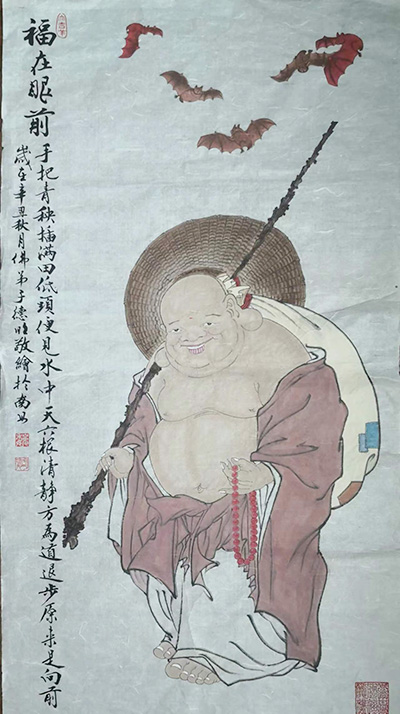 福在眼前
手把青秧插满田低頭便見水中天六根清静方為道退步原来是向前
歲在辛丑秋月佛弟子德敬繪於南昌